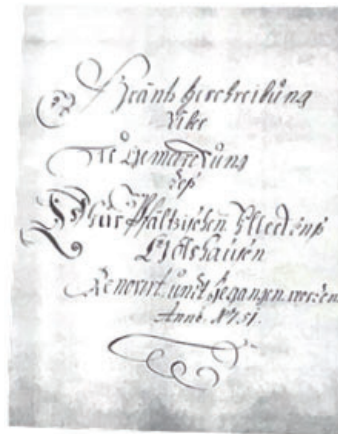 Gräntz Beschreibung
über
die Gemarckung
deß
Chur Pfältzischen Fleckens
renovirt und begangen worden
Anno 1751.